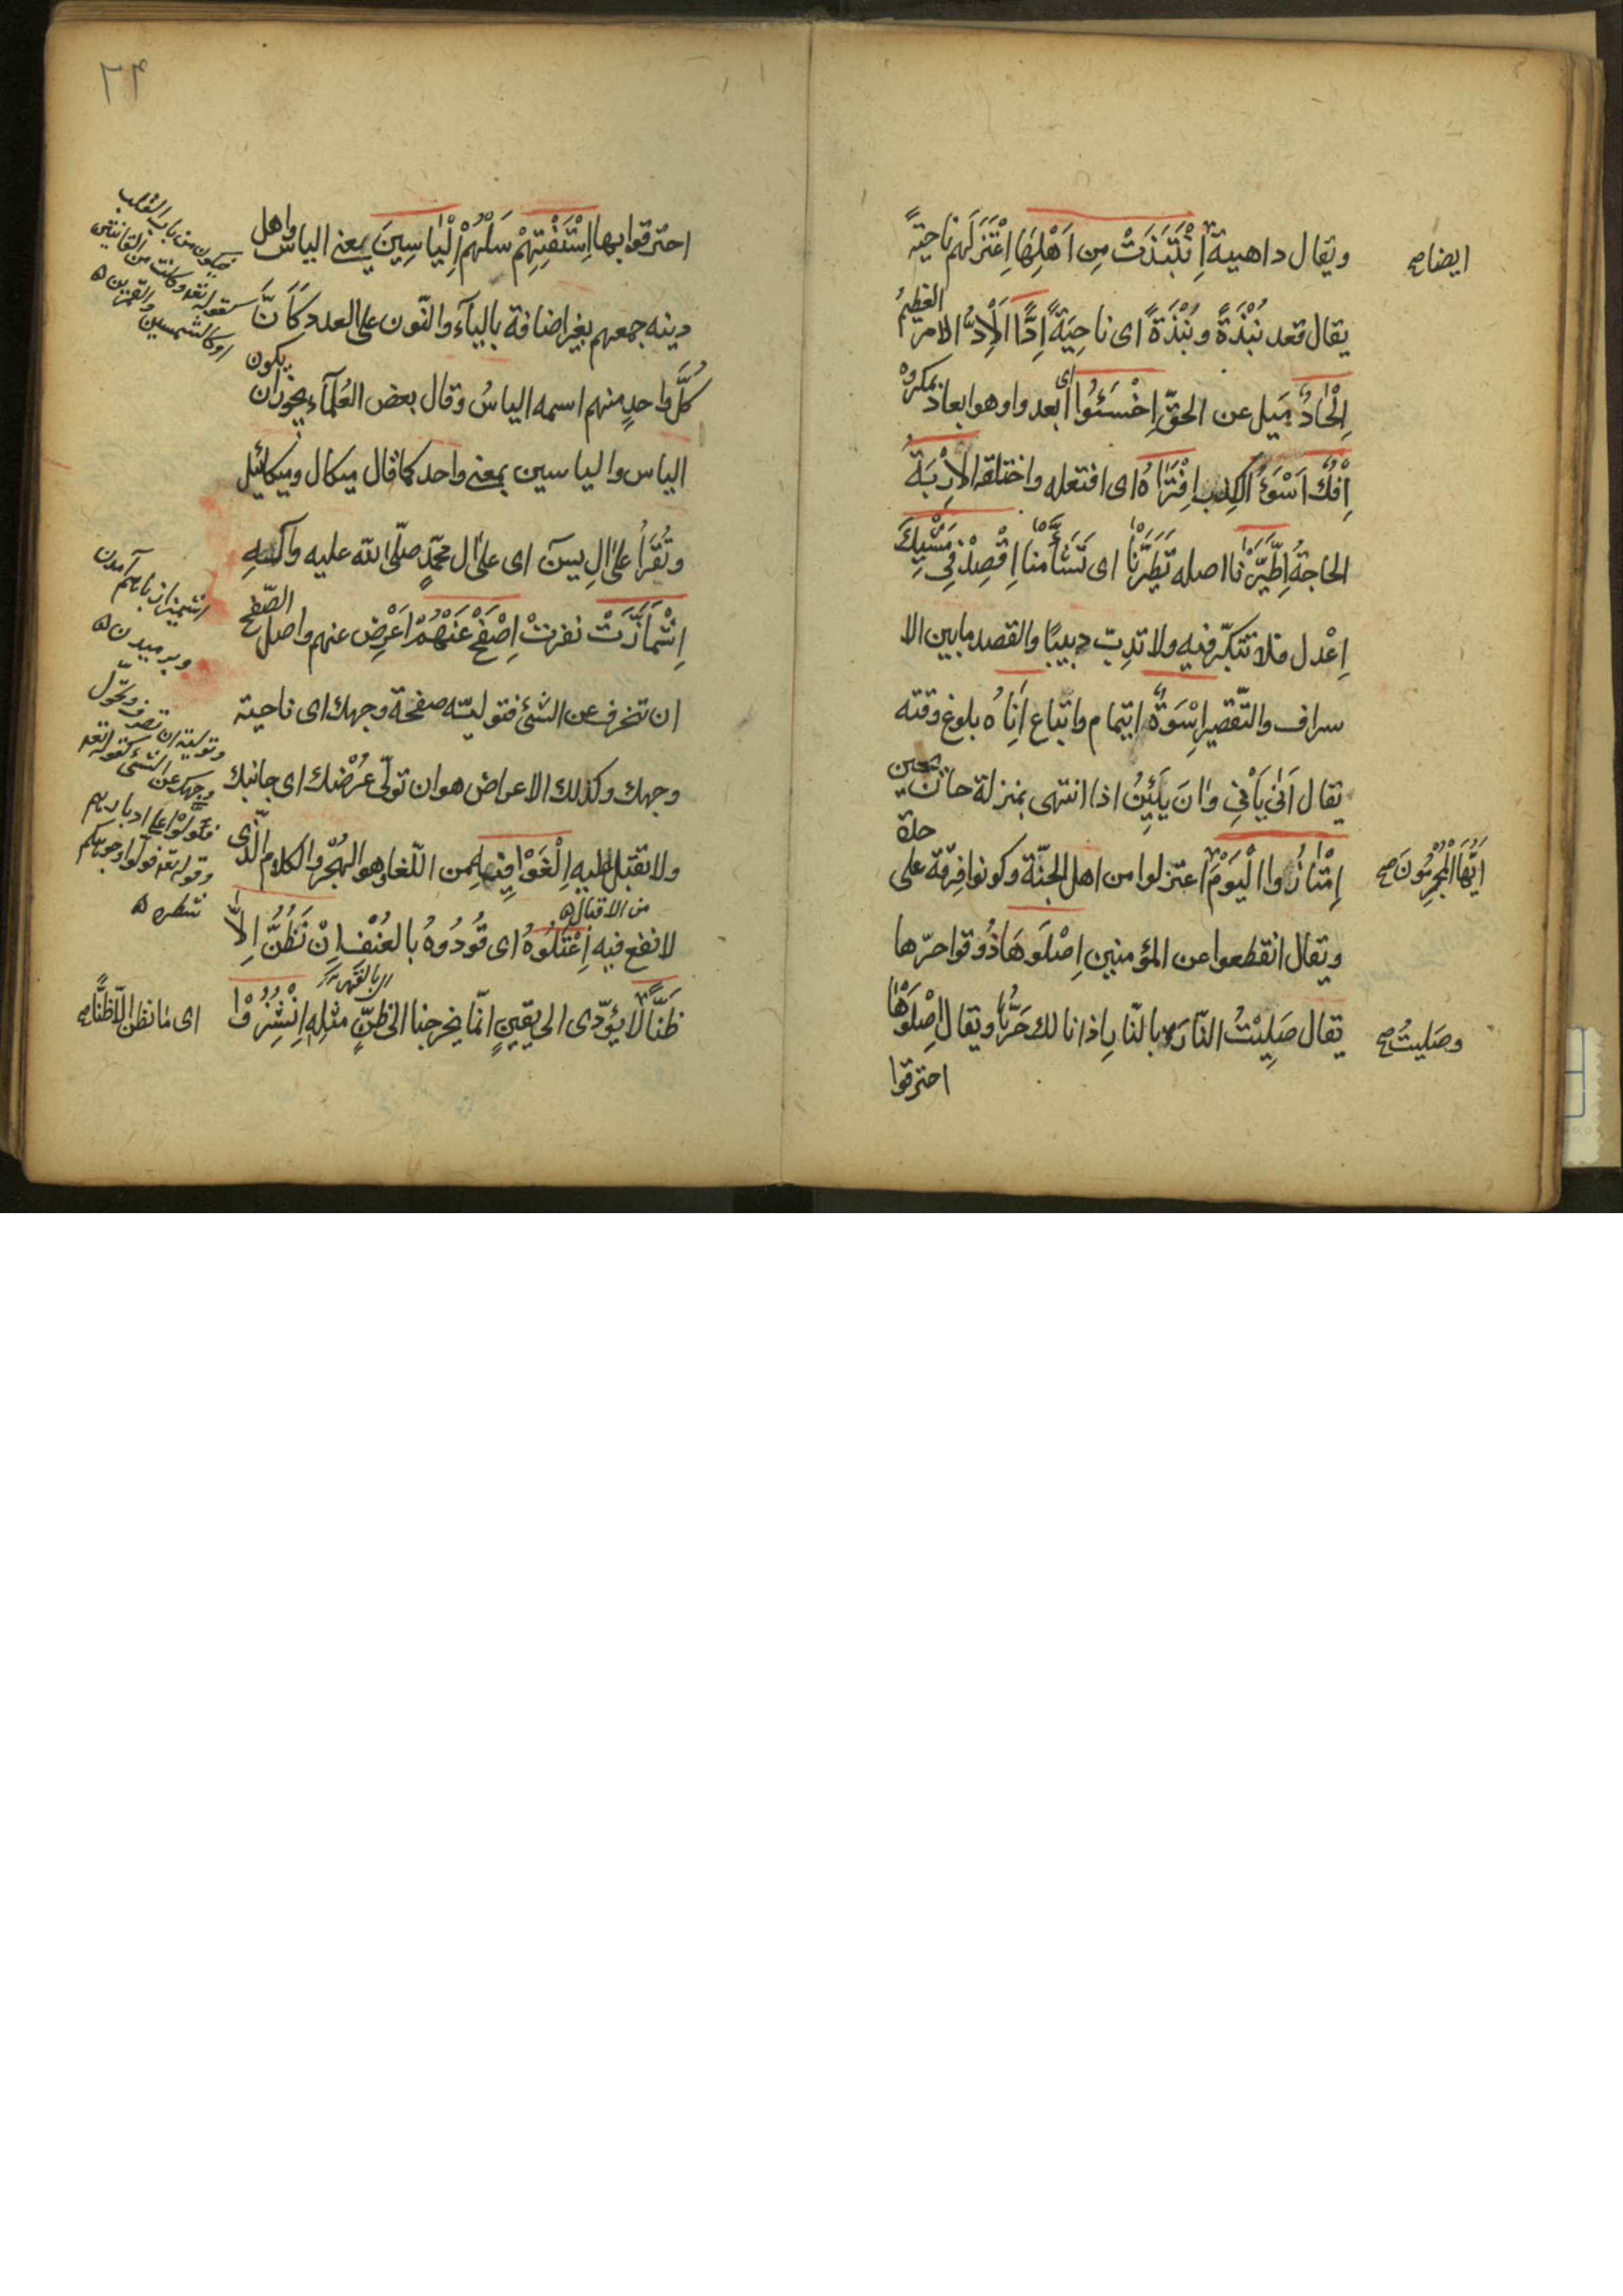 ويقال داهية اِنْتَبَذَتْ مِن اَهْلِهَا اِعْتَزَلَهم ناحيةً
ايضا صح
يقال قعد نُبْذَةً ونَبْذَةً اى ناحِيَةً اِدًّا اَلْاِدُّ الامر العظيمُ
اِلْحَادٌ مَيل عن الحقّ اِخْسَئُوا اى ابعدوا وهو ابعاد بمكروه
اِفْكٌ اَسْوَءُ الكِذب اِفْتَرَاهُ اى افتعله واختلقه الاِرْبَةُ
الحاجةُ اِطَّيَّرْنَا اصله تَطَيَّرْنَا اى تَشَأَّمْنَا اِقْصِدْ فِى مَشْيِكَ
اِعْدل فلا تتكبّر فيه ولا تدِبّ دبيبًا والقصد ما بين الا
سراف والتّقصير اِسْوَةٌ ايتمام واتّباع اِنَاهُ بلوغ وقته
يقال اَنٰى يَأْنِى وَانَ يَئِينُ اذا انتهى بمنزلة حان يحين
اِمْتَازُوا الْيَوْمَ اعتزلوا من اهل الجنّة وكونوا فِرقة على حدة
اَيُّهَا الْمُجْرِمُونَ صح
ويقال انقطعوا عن المؤمنين اِصْلَوْهَا ذُوقوا حرّها
يقال صَلِيْتُ النّارَ وبالنّارِ اذا نالك حَرُّهَا ويقال اِصْلَوْهَا
وصَليتُ صح
احترقوا
احترقوا بها اِسْتَفْتِهِمْ سَلْهُمْ اِلْيَاسِينَ يعنى الياس واهل
دينه جمعهم بغير اضافة بالياء والنّون على العدد كَاَنَّ
كُلَّ واحدٍ منهم اسمه الياسُ وقال بعض العُلمآء يجوز ان يكون
الياس والياسين بمعنى واحد كما قال ميكال وميكائيل
وتُقْرَأُ عَلىٰ اٰلِ يسٓ اى علىٰ ال محمّدٍ صلّى الله عليه وآلِهِ
اِشْمَأَزَّتْ نفرتْ اِصْفَحْ عَنْهُمْ اَعْرِض عنهم واصل الصّفح
ان تنحرف عن الشئ فتوليه صفحة وجهك اى ناحية
وجهك وكذلك الاعراض هو ان تولّى عُرْضَك اى جانبك
ولا تقبل عليه اِلْغَوْا فِيهِ من اللّغا وهو الهُجْر والكلام الّذى
من الاقبال
لا نفع فيه اِعْتَلُوهُ اى قُودُوهُ بالعُنْف اِنْ نَظُنُّ اِلَّا
اى بالقهر
ظَنًّا لا يؤدّى الى يقينٍ انّما يخرجنا الى ظنّ مثلِه اِنْشُزُوْا
اى ما نظن الّا ظنًّا صح
فيكون من باب التغليب
كقوله تعه وكانت من القانتين
او كالشمسين والقمرين
اشميزاز باهم آمدن
وبرميدن
وتوليه ان تصرف وتحوّل
وجهك عن الشئ كقوله تعه
فتولّوا على ادبارهم
وقوله تعه فولّوا وجوهكم
شطره